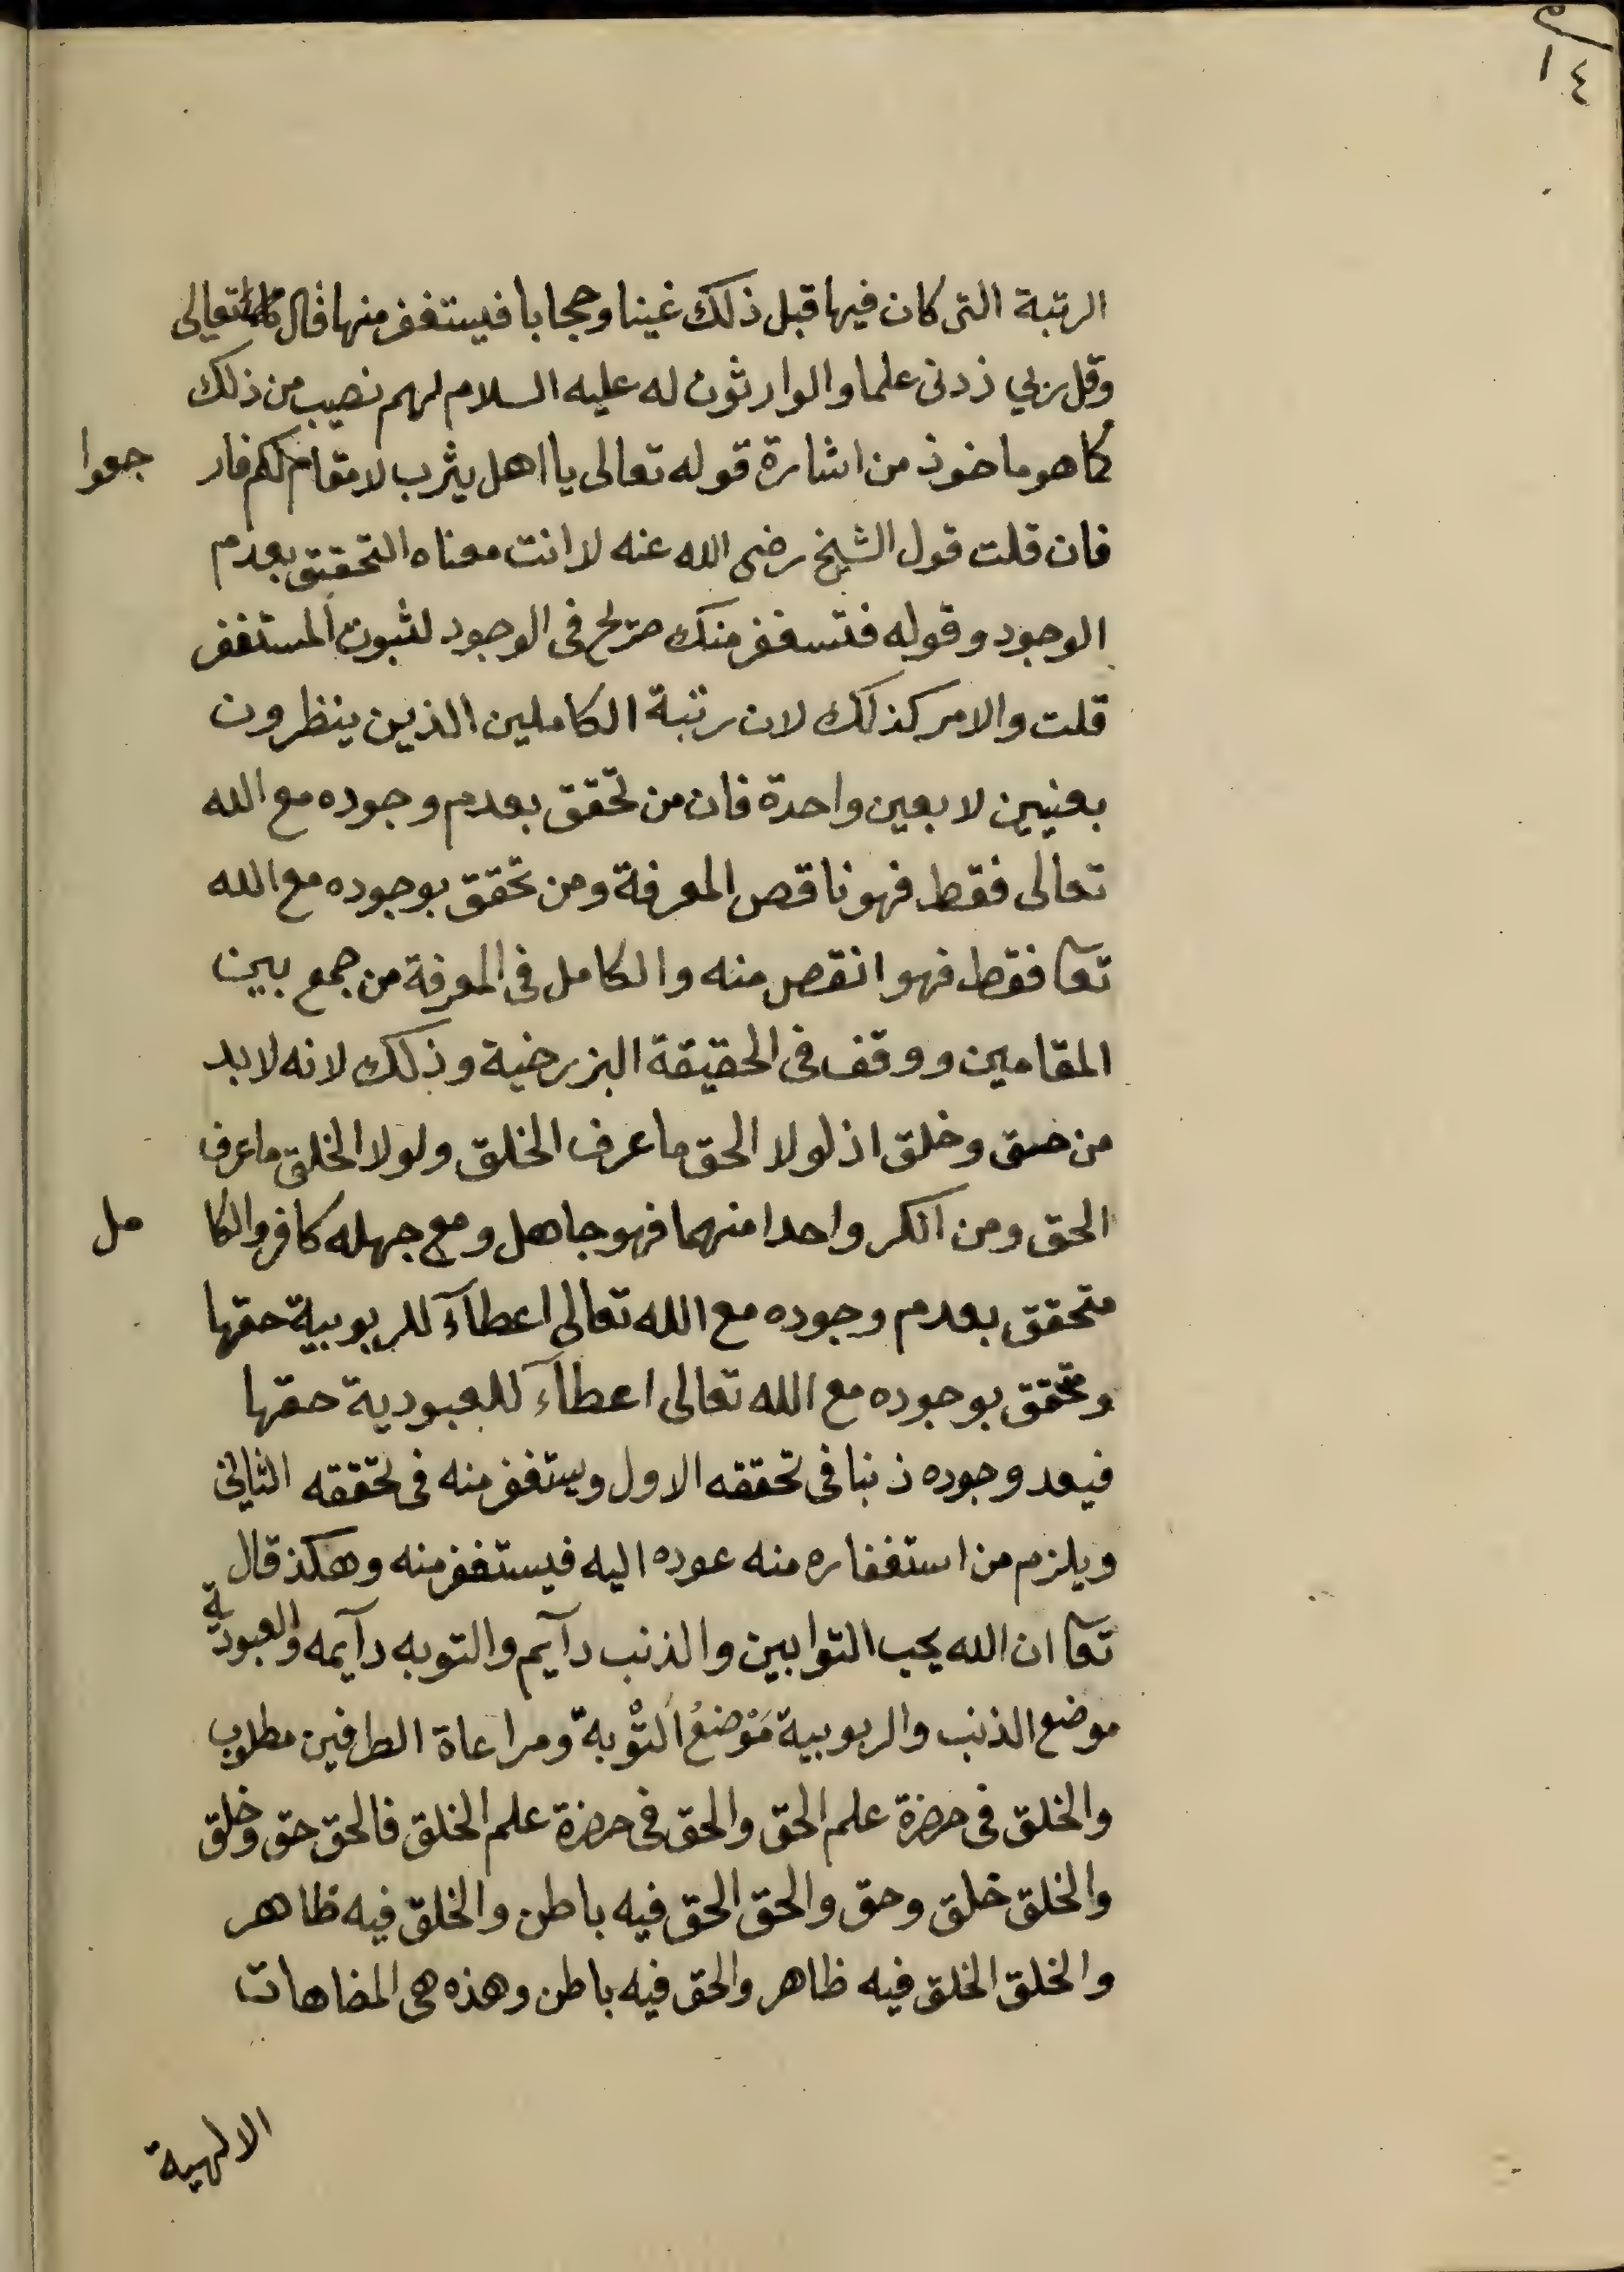 ١٤
الرتبة التى كان فيها قبل ذلك غينا وحجابا فيستغفر منها قال تعالى
وقل ربي زدنى علما والوارثون له عليه السلام لهم نصيب من ذلك
كما هو ماخوذ من اشارة قوله تعالى يا اهل يثرب لا مقام لكم فارجعوا
فان قلت قول الشيخ رضى الله عنه لا انت معناه التحقيق بعدم
الوجود وقوله فتسغفر منك صريح فى الوجود لثبوت المستغفر
قلت والامر كذلك لان رتبة الكاملين الذين ينظرون
بعنيين لا بعين واحدة فان من تحقق بعدم وجوده مع الله
تعالى فقط فهو ناقص المعرفة ومن تحقق بوجوده مع الله
تعا فقط فهو انقص منه والكامل فى المعرفة من جمع بين
المقامين ووقف فى الحقيقة البزرخية وذلك لانه لابد
من حق وخلق اذ لولا الحق ما عرف الخلق ولولا الخلق ما عرف
الحق ومن انكر واحدا منهما فهو جاهل ومع جهله كافر والكامل
متحقق بعدم وجوده مع الله تعالى اعطآء للربوبية حقها
ومتحقق بوجوده مع الله تعالى اعطآء للعبودية حقها
فيعد وجوده ذنبا فى تحققه الاول ويستغفر منه فى تحققه الثانى
ويلزم من استغفاره منه عوده اليه فيستغفر منه وهكذ قال
تعا ان الله يحب التوابين والذنب دآيم والتوبه دآيمه والعبودية
موضع الذنب والربوبية مَوْضعُ التوْبة ومراعاة الطرفين مطلوب
والخلق فى حضرة علم الحق والحق فى حضرة علم الخلق فالحق حق وخلق
والخلق خلق وحق والحق الحق فيه باطن والخلق فيه ظاهر
والخلق الخلق فيه ظاهر والحق فيه باطن وهذه هى المضاهات
الالهية